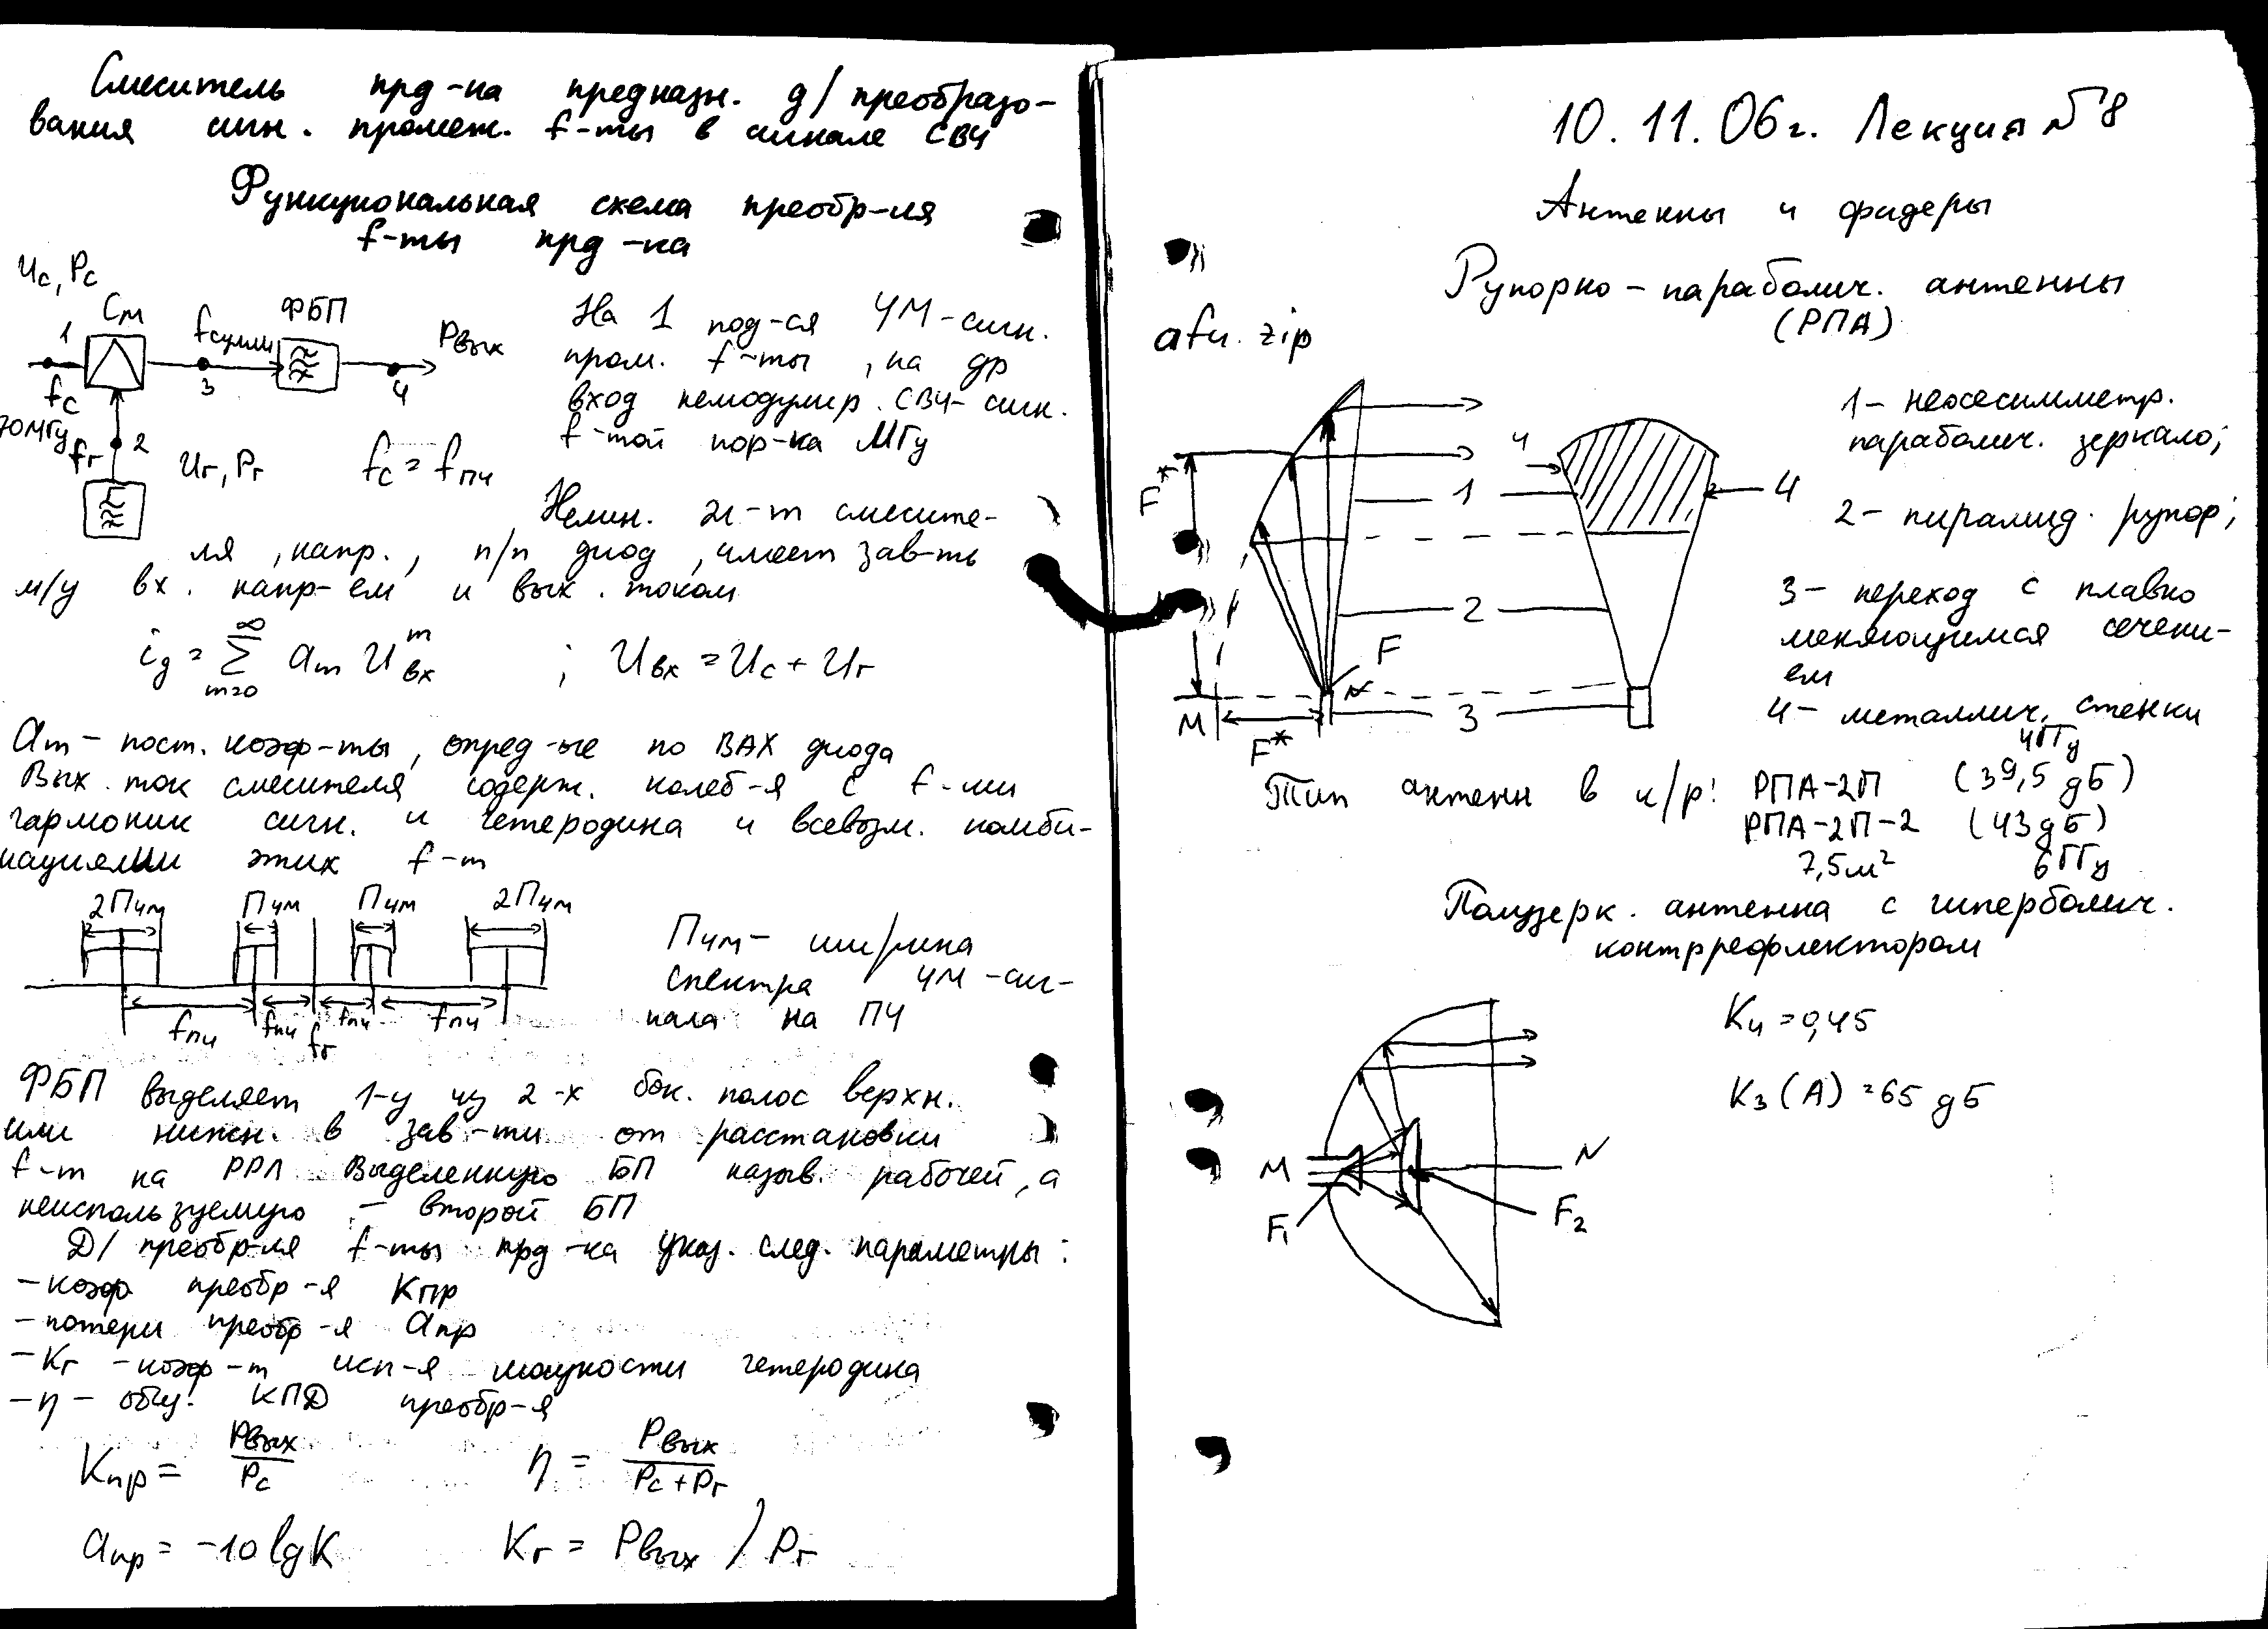 Смеситель прд-ка предназн. д/ преобразо-
вания сигн. промеж. f-ты в сигнале СВЧ
Функциональная схема преобр-ля
f-ты прд-ка
Uс, Pс
1
См
fсумм
ФБП
Pвых
3
4
fс
70МГц
fг
2
Uг, Pг
fс = fпч
На 1 под-ся ЧМ-сигн.
пром. f-ты, на др
вход немодулир. СВЧ-сигн.
f-той пор-ка МГц
Нелин. эл-т смесите-
ля, напр., п/п диод, имеет зав-ть
м/у вх. напр-ем и вых. током
iд = ∞ Σ m=0 am U m вх ; Uвх = Uс + Uг
am – пост. коэф-ты, опред-ые по ВАХ диода
Вых. ток смесителя содерж. колеб-я с f-ми
гармоник сигн. и гетеродина и всевозм. комби-
нациями этих f-т
2Пчм Пчм Пчм 2Пчм
fпч fпч fг fпч fпч
Пчм – ширина
спектра ЧМ-сиг-
нала на ПЧ
ФБП выделяет 1-у из 2-х бок. полос верхн.
или нижн. в зав-ти от расстановки
f-т на РРЛ Выделенную БП назыв. рабочей, а
неиспользуемую – второй БП
Д/ преобр-ля f-ты прд-ка указ. след. параметры:
– коэф преобр-я Kпр
– потери преобр-я aпр
– Kг – коэф-т исп-я мощности гетеродина
– η – общ. КПД преобр-я
Kпр = Pвых / Pс η = Pвых / Pс + Pг
aпр = -10 lg K Kг = Pвых / Pг
10.11.06г. Лекция №8
Антенны и фидеры
Рупорно-параболич. антенны
(РПА)
afu.zip
F*
M
F*
F
N
1
2
3
4
4
1 – неосесимметр.
параболич. зеркало;
2 – пирамид. рупор;
3 – переход с плавно
меняющимся сечени-
ем
4 – металлич. стенки
4ГГц
Тип антенн в к/р: РПА-2П (39,5 дБ)
РПА-2П-2 (43дБ)
7,5м² 6ГГц
Полузерк. антенна с гиперболич.
контррефлектором
Kи = 0,45
Kз (А) = 65 дБ
M
F1
N
F2